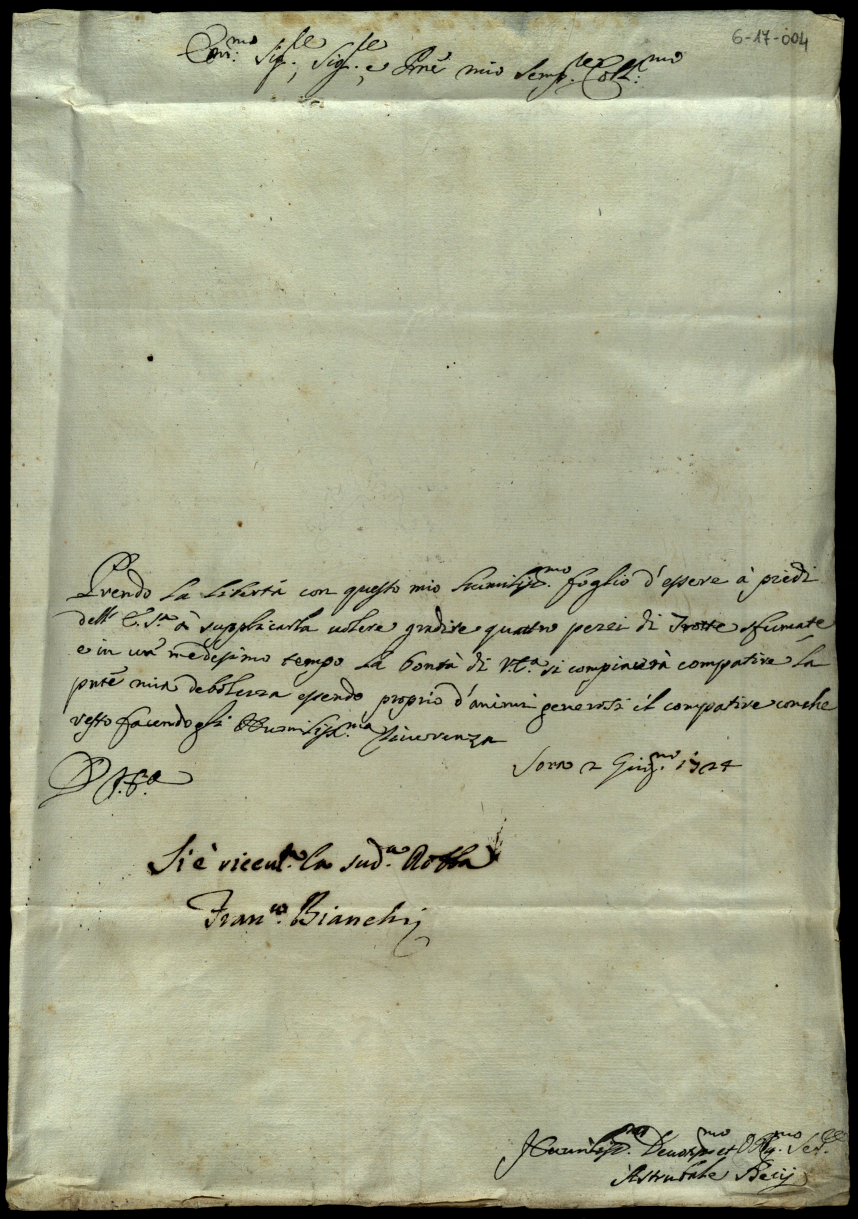 6-17-004
Em:mo Sig:re, Sig:re e Pne mio Semp:re Coll:mo
Prendo la libertà con questo mio humiliss:mo foglio d'essere à piedi
dell' E. S.ra à supplicarla volere gradire quattro pezzi di Trotte sfumate
e in un medesimo tempo la bontà di V.E.a si compiacerà compatire la
pnte mia debolezza essendo proprio d'animi generosi il compatire, con che
resto facendogli Humiliss.ma Riverenza
Sora 2 Giug.no 1724
D. V. E.a
Si è riceut.a la sud.a Robba
Fran.co Bianchi
Humiliss:mo Devotis.mo et Obblig.mo Ser.re
Astrubale